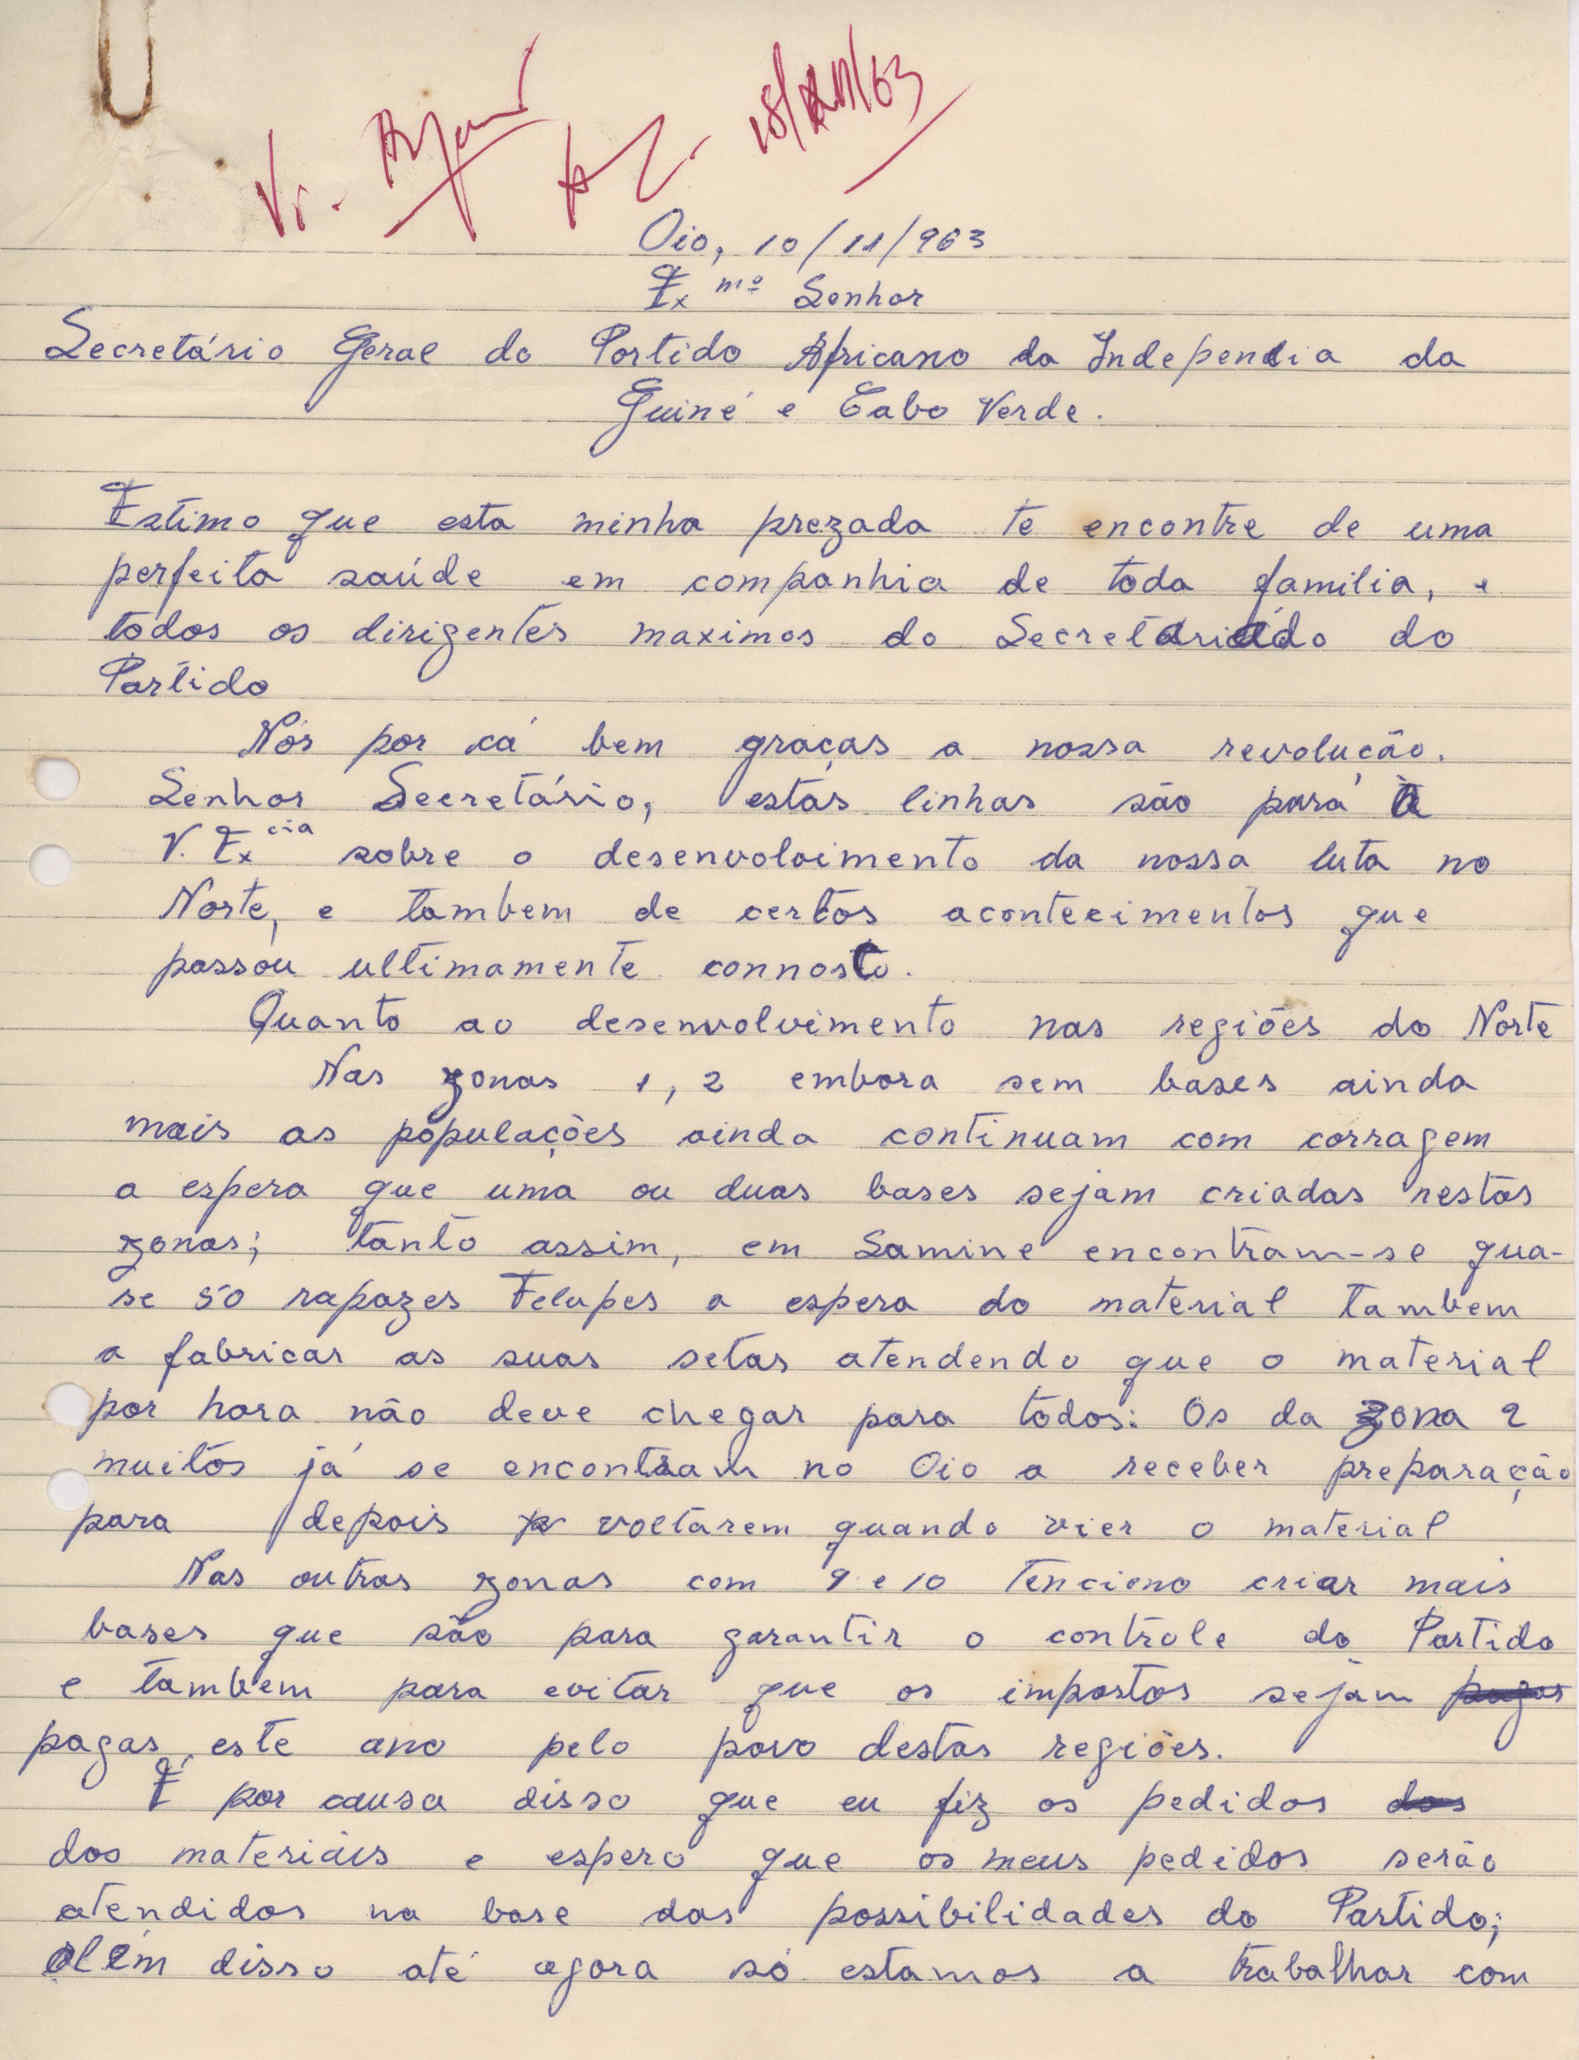 18/XII/63
Oio, 10/11/963
Exmº Senhor
Secretário Geral do Partido Africano da Independia da
Guiné e Cabo Verde.
Estimo que esta minha prezada te encontre de uma
perfeita saúde em companhia de toda familia, e
todos os dirigentes maximos do Secretariado do
Partido
Nós por cá bem graças a nossa revolução.
Senhor Secretário, estas linhas são para à
V. Excia sobre o desenvolvimento da nossa luta no
Norte, e tambem de certos acontecimentos que
passou ultimamente connosco.
Quanto ao desenvolvimento nas regiões do Norte
Nas zonas 1, 2 embora sem bases ainda
mais as populações ainda continuam com corragem
a espera que uma ou duas bases sejam criadas nestas
zonas; tanto assim, em Samine encontram-se qua-
se 50 rapazes Felupes a espera do material tambem
a fabricar as suas setas atendendo que o material
por hora não deve chegar para todos: Os da zona 2
muitos já se encontram no Oio a receber preparação
para depois voltarem quando vier o material
Nas outras zonas com 9 e 10 tenciono criar mais
bases que são para garantir o controle do Partido
e tambem para evitar que os impostos sejam pagas
pagas este ano pelo povo destas regiões.
É por causa disso que eu fiz os pedidos dos
dos materiáis e espero que os meus pedidos serão
atendidos na base das possibilidades do Partido;
além disso até agora só estamos a trabalhar com